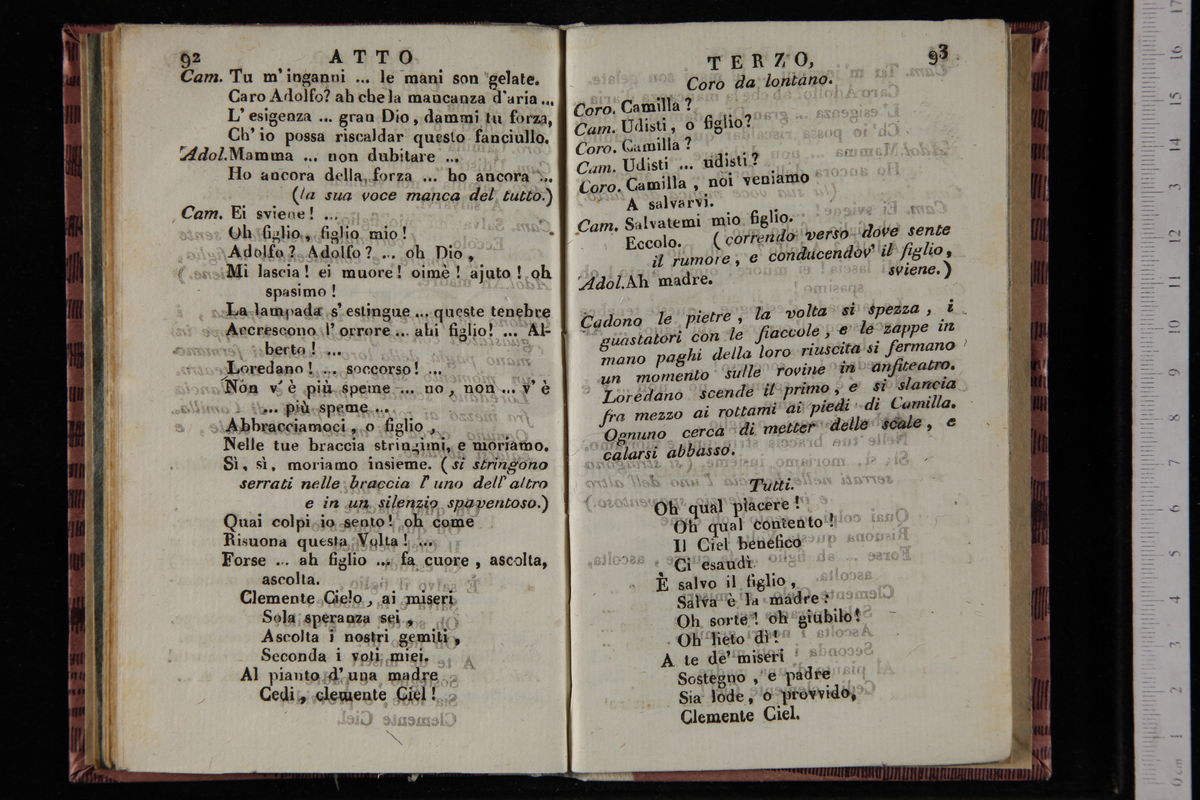 92 ATTO
Cam. Tu m'inganni ... le mani son gelate.
Caro Adolfo? ah che la mancanza d'aria ...
L'esigenza ... gran Dio, dammi tu forza,
Ch'io possa riscaldar questo fanciullo.
Adol. Mamma ... non dubitare ...
Ho ancora della forza ... ho ancora ...
(la sua voce manca del tutto.)
Cam. Ei sviene! ...
Oh figlio, figlio mio!
Adolfo? Adolfo? ... oh Dio,
Mi lascia! ei muore! oimè! ajuto! oh
spasimo!
La lampada s'estingue ... queste tenebre
Accrescono l'orrore ... ahi figlio! ... Al-
berto! ...
Loredano! ... soccorso! ...
Non v'è più speme ... no, non ... v'è
... più speme ...
Abbracciamoci, o figlio,
Nelle tue braccia stringimi, e moriamo.
Sì, sì, moriamo insieme. (si stringono
serrati nelle braccia l'uno dell'altro
e in un silenzio spaventoso.)
Quai colpi io sento! oh come
Risuona questa Volta! ...
Forse ... ah figlio ... fa cuore, ascolta,
ascolta.
Clemente Cielo, ai miseri
Sola speranza sei,
Ascolta i nostri gemiti,
Seconda i voti miei.
Al pianto d'una madre
Cedi, clemente Ciel!
TERZO, 93
Coro da lontano.
Coro. Camilla?
Cam. Udisti, o figlio?
Coro. Camilla?
Cam. Udisti ... udisti?
Coro. Camilla, noi veniamo
A salvarvi.
Cam. Salvatemi mio figlio.
Eccolo. (correndo verso dove sente
il rumore, e conducendov' il figlio,
sviene.)
Adol. Ah madre.
Cadono le pietre, la volta si spezza, i
guastatori con le fiaccole, e le zappe in
mano paghi della loro riuscita si fermano
un momento sulle rovine in anfiteatro.
Loredano scende il primo, e si slancia
fra mezzo ai rottami ai piedi di Camilla.
Ognuno cerca di metter delle scale, e
calarsi abbasso.
Tutti.
Oh qual piacere!
Oh qual contento!
Il Ciel benefico
Ci esaudì
È salvo il figlio,
Salva è la madre:
Oh sorte! oh giubilo!
Oh lieto dì!
A te de' miseri
Sostegno, e padre
Sia lode, o provvido,
Clemente Ciel.
17
16
15
14
13
12
11
10
9
8
7
6
5
4
3
2
1
0 cm